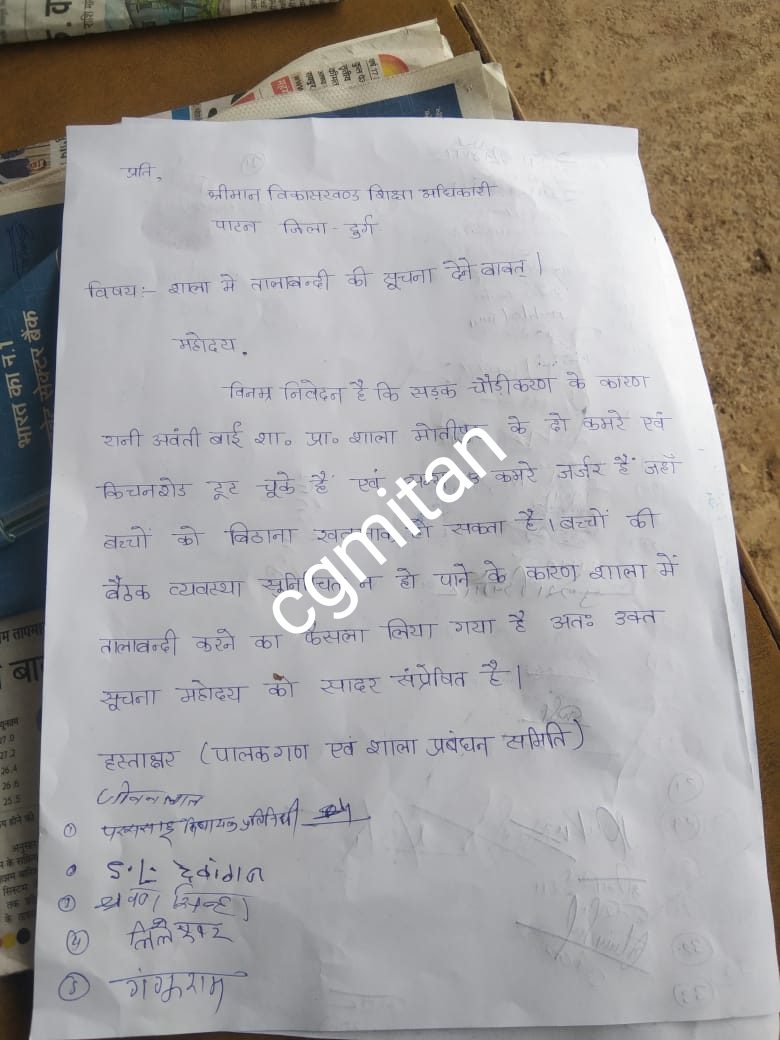 प्रति,
श्रीमान विकासखण्ड शिक्षा अधिकारी
पाटन जिला - दुर्ग
विषय:- शाला में तालाबन्दी की सूचना देने बाबत् ।
महोदय,
विनम्र निवेदन है कि सड़क चौड़ीकरण के कारण
रानी अवंती बाई शा० प्रा० शाला के दो कमरे एवं
किचनशेड टूट चूके हैं एवं कमरे जर्जर हैं जहाँ
बच्चों को बिठाना हो सकता है । बच्चों की
बैठक व्यवस्था सुनिश्चित न हो पाने के कारण शाला में
तालाबन्दी करने का फैसला लिया गया है अतः उक्त
सूचना महोदय को सादर संप्रेषित है ।
हस्ताक्षर (पालकगण एवं शाला प्रबंधन समिति)
जीवनलाल
①
S.L. देवांगन
③
④ लिलेश्वर
⑤ गंगूराम
cgmitan
भारत का नं.1
बैंक
27.2
26.4
26.6
25.5